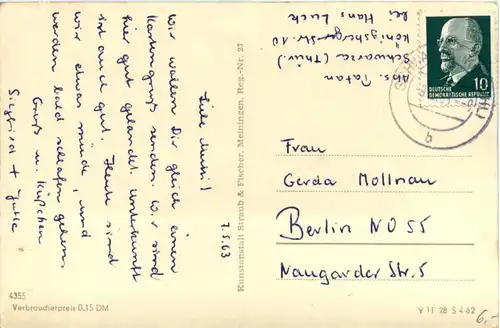 Abs. Patan
Schwarza (Thür.)
Königsbergerstr. 10
bei Hans Luck
10
DEUTSCHE
DEMOKRATISCHE REPUBLIK
b
7.5.63
Liebe Mutti!
Wir wollen Dir gleich einen
Kartengruß senden. Wir sind
hier gut gelandet. Unterkunft
ist auch gut. Heute sind
wir etwas müde, und
werden bald schlafen gehen.
Gruß u. Küßchen
Siegfried + Jutta
Kunstanstalt Straub & Fischer, Meiningen, Reg.-Nr. 23
Frau
Gerda Mollnau
Berlin NO 55
Naugarder Str. 5
4355
Verbraucherpreis 0,15 DM
V 11 28 S 4 62
6,-